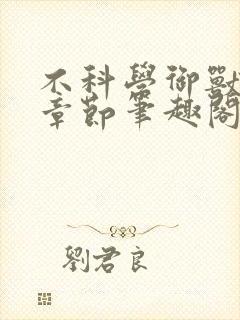 不科學御獸
章節筆趣閣
劉君良